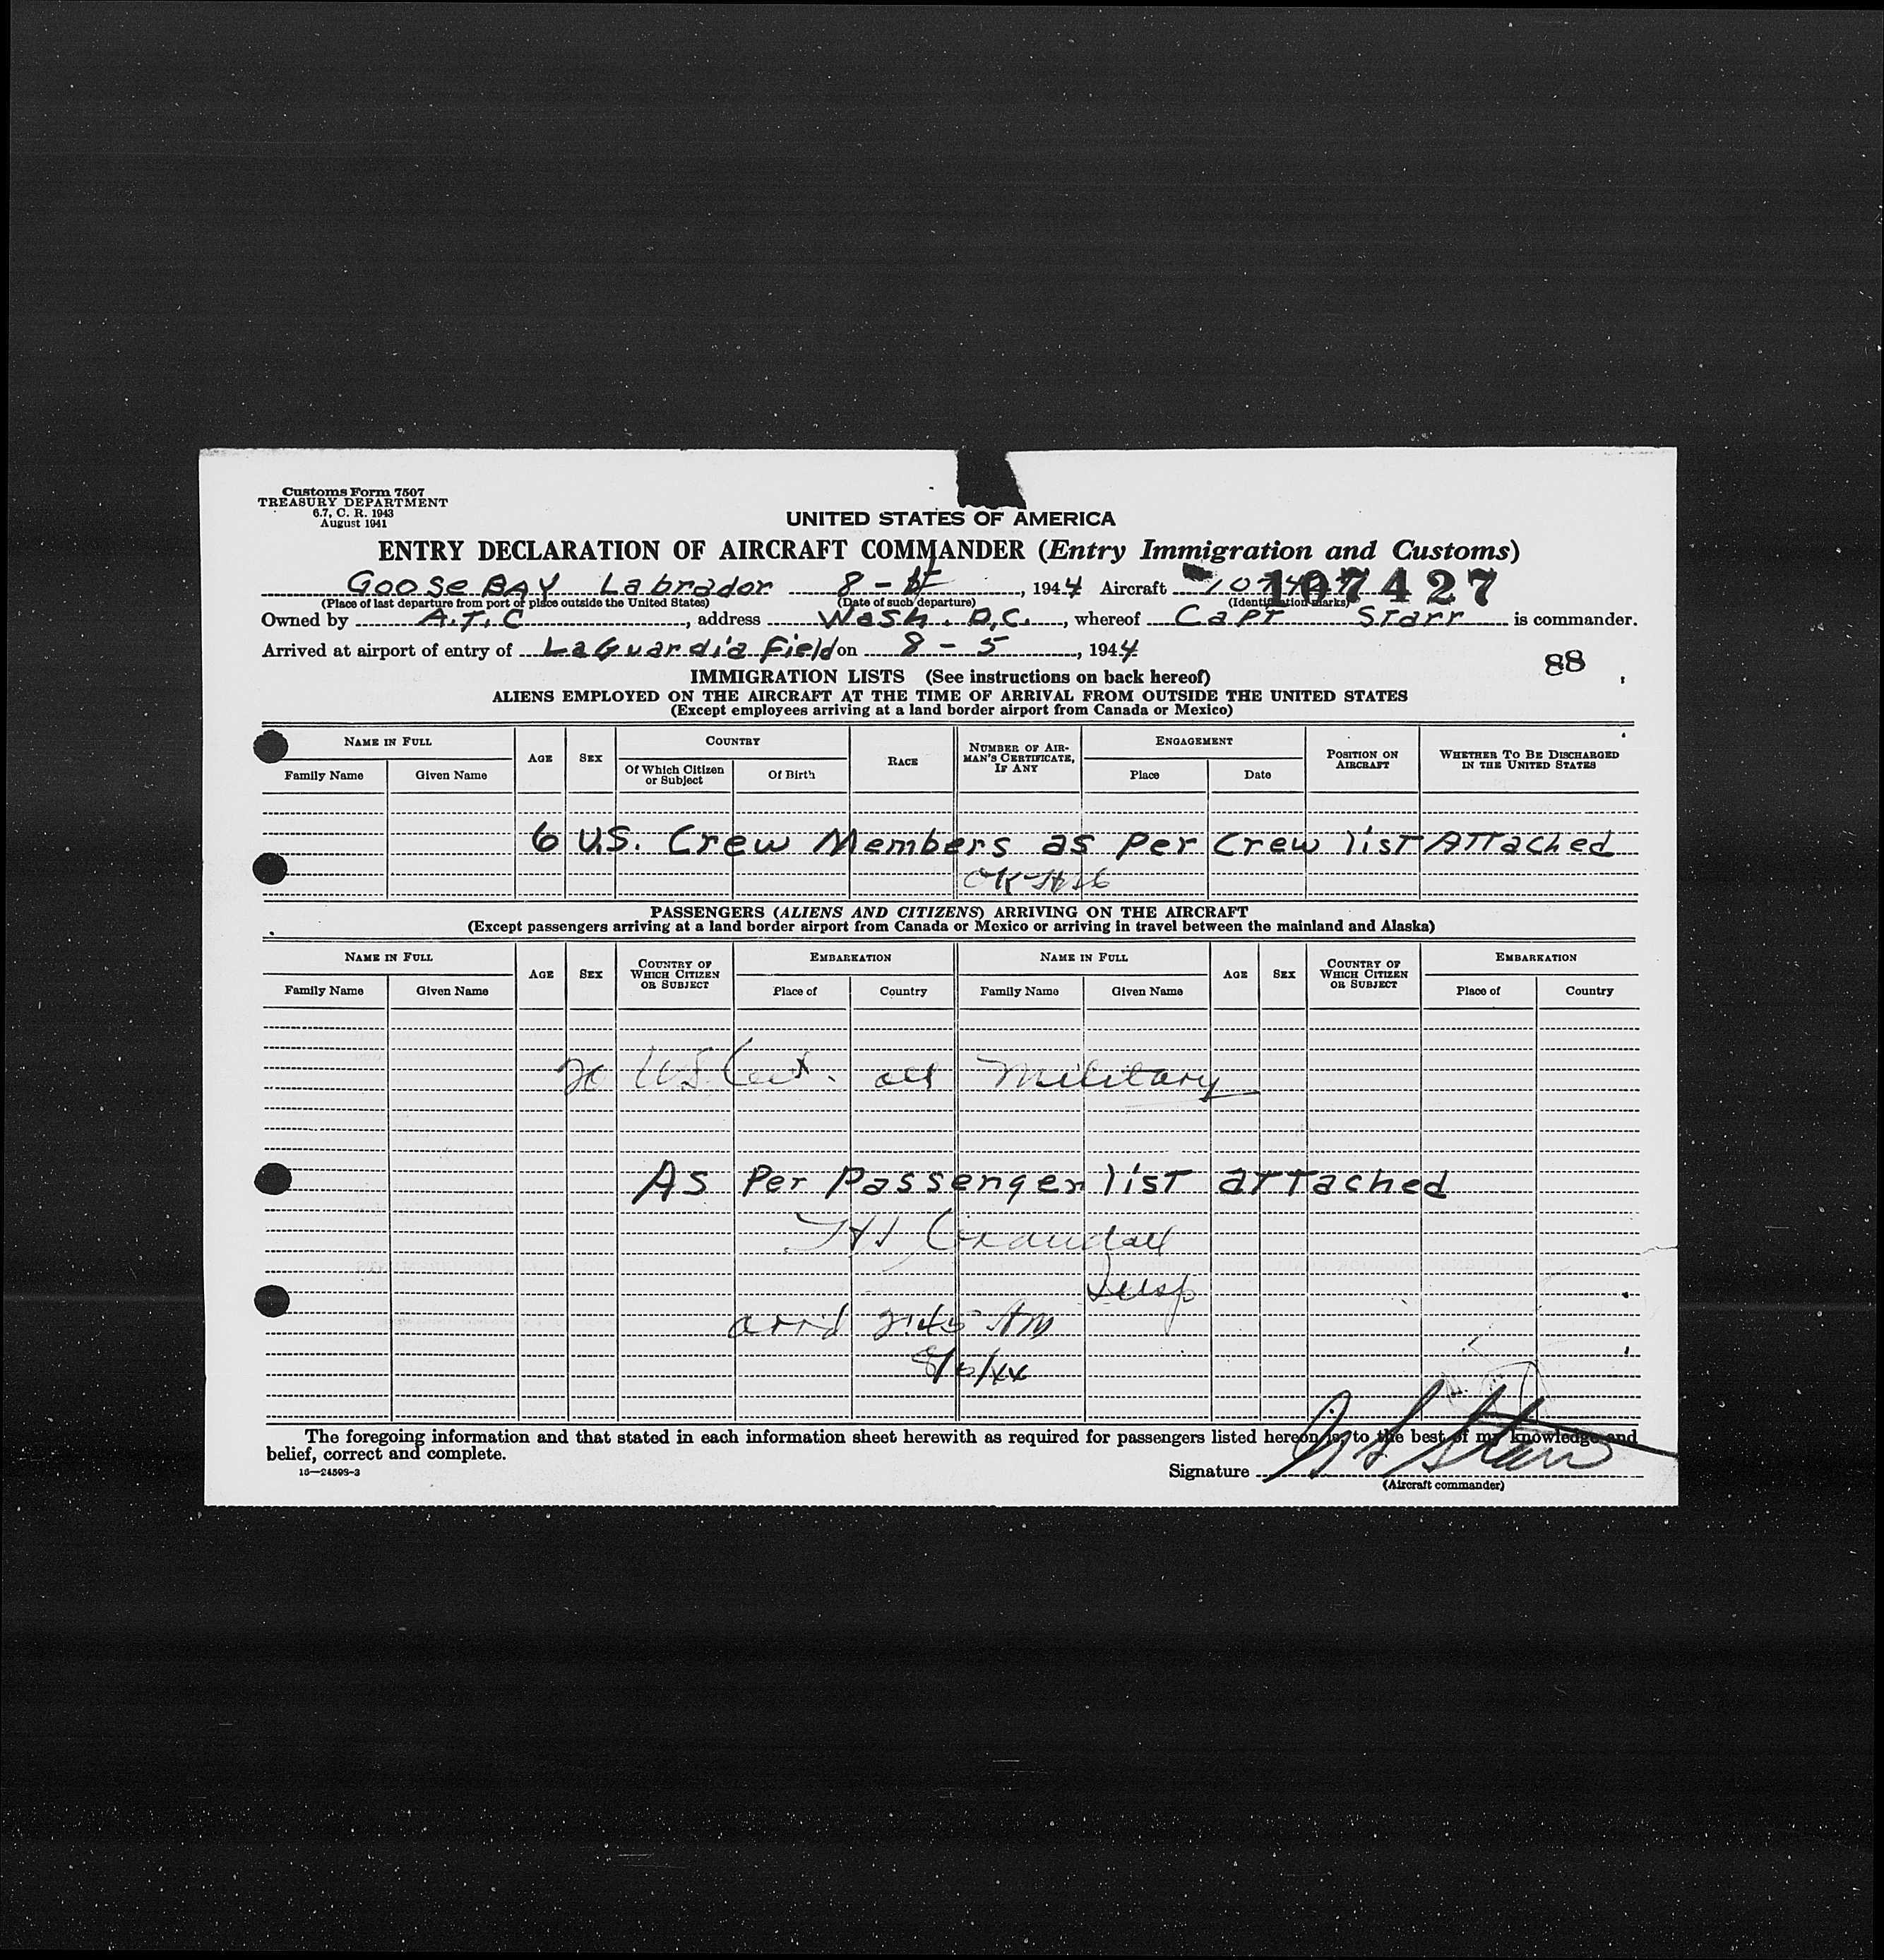 Customs Form 7507
TREASURY DEPARTMENT
6.7, C. R. 1943
August 1941
UNITED STATES OF AMERICA
ENTRY DECLARATION OF AIRCRAFT COMMANDER (Entry Immigration and Customs)
Goose BAY Labrador 8 - , 1944 Aircraft 107427
(Place of last departure from port or place outside the United States) (Date of such departure) (Identification marks)
Owned by A.T.C , address Wash. D.C. , whereof Capt Starr is commander.
Arrived at airport of entry of LaGuardia Field on 8 - 5 , 1944
88
IMMIGRATION LISTS (See instructions on back hereof)
ALIENS EMPLOYED ON THE AIRCRAFT AT THE TIME OF ARRIVAL FROM OUTSIDE THE UNITED STATES
(Except employees arriving at a land border airport from Canada or Mexico)
NAME IN FULL AGE SEX COUNTRY RACE NUMBER OF AIRMAN'S CERTIFICATE, IF ANY ENGAGEMENT POSITION ON AIRCRAFT WHETHER TO BE DISCHARGED IN THE UNITED STATES
Family Name Given Name Of Which Citizen or Subject Of Birth Place Date
6 U.S. Crew Members as Per Crew list Attached
OK
PASSENGERS (ALIENS AND CITIZENS) ARRIVING ON THE AIRCRAFT
(Except passengers arriving at a land border airport from Canada or Mexico or arriving in travel between the mainland and Alaska)
NAME IN FULL AGE SEX COUNTRY OF WHICH CITIZEN OR SUBJECT EMBARKATION NAME IN FULL AGE SEX COUNTRY OF WHICH CITIZEN OR SUBJECT EMBARKATION
Family Name Given Name Place of Country Family Name Given Name Place of Country
20 US Cit. all Military
As Per Passenger list attached
Crandall
Insp
arrd 2:45 AM
The foregoing information and that stated in each information sheet herewith as required for passengers listed hereon is, to the best of my knowledge and
belief, correct and complete.
16—24598-3
Signature Starr
(Aircraft commander)